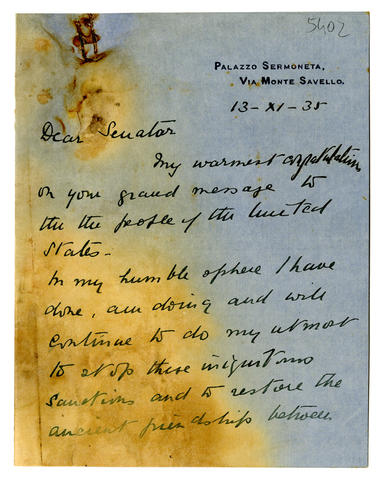 5402
PALAZZO SERMONETA,
VIA MONTE SAVELLO.
13-XI-35
Dear Senator
My warmest
on your grand message to
the the people of the United
States-
In my humble sphere I have
done, am doing and will
continue to do my utmost
to stop these
sanctions and to restore the
ancient friendship between